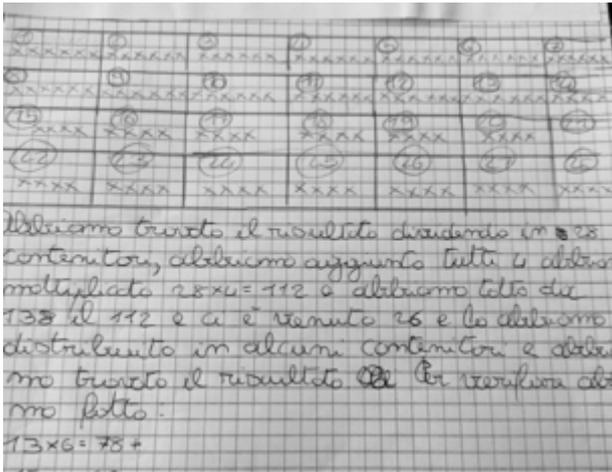 1 2 3 4 5 6 7
xxxxxx xxxxxx xxxxxx xxxxxx xxxxxx xxxxxx xxxxx
8 9 10 11 12 13 14
xxxxxx xxxxxx xxxxxx xxxxxx xxxxxx xxxxxx xxxx
15 16 17 18 19 20 21
xxxx xxxx xxxx xxxx xxxx xxxx xxxx
22 23 24 25 26 27 28
xxxx xxxx xxxx xxxx xxxx xxxx xxxx
Abbiamo trovato il risultato dividendo in 28
contenitori, abbiamo aggiunto tutti 4 abbiamo
moltiplicato 28x4=112 e abbiamo tolto da
138 il 112 e ci è venuto 26 e lo abbiamo
distribuito in alcuni contenitori e abbia
mo trovato il risultato Per verificare abbia
mo fatto:
13x6=78+